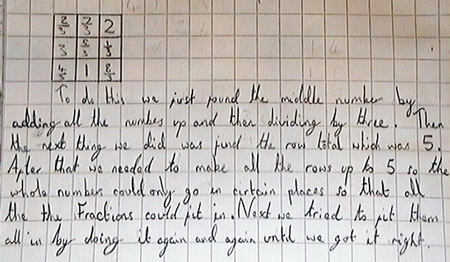 2/3 7/3 2
3 5/3 1/3
4/3 1 8/3
To do this we just found the middle number by
adding all the numbes up and then dividing by three. Then
the next thing we did was find the row total which was 5.
After that we needed to make all the rows up to 5 so the
whole number could only go in certain places so that all
the the Fractions could fit in. Next we tried to put them
all in by doing it again and again until we got it right.